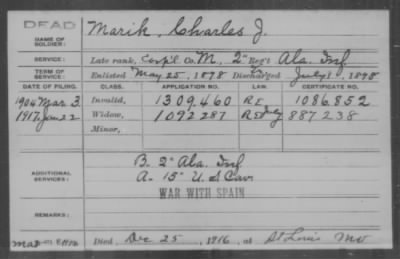 DEAD
NAME OF SOLDIER:
Marik, Charles J.
SERVICE:
Late rank, Corp'l Co. M, 2" Reg't Ala. Inf
TERM OF SERVICE:
Enlisted May 25, 1898 Discharged July 1, 1898
DATE OF FILING. CLASS. APPLICATION NO. LAW. CERTIFICATE NO.
1904 Mar 3. Invalid, 1309460 1086.852
1917, Jan 22 Widow, 1092287 887238
Minor,
ADDITIONAL SERVICES:
B. 2" Ala. Inf
A. 15" U.S Cav.
WAR WITH SPAIN
REMARKS:
Died Dec 25, 1916, at St Louis Mo